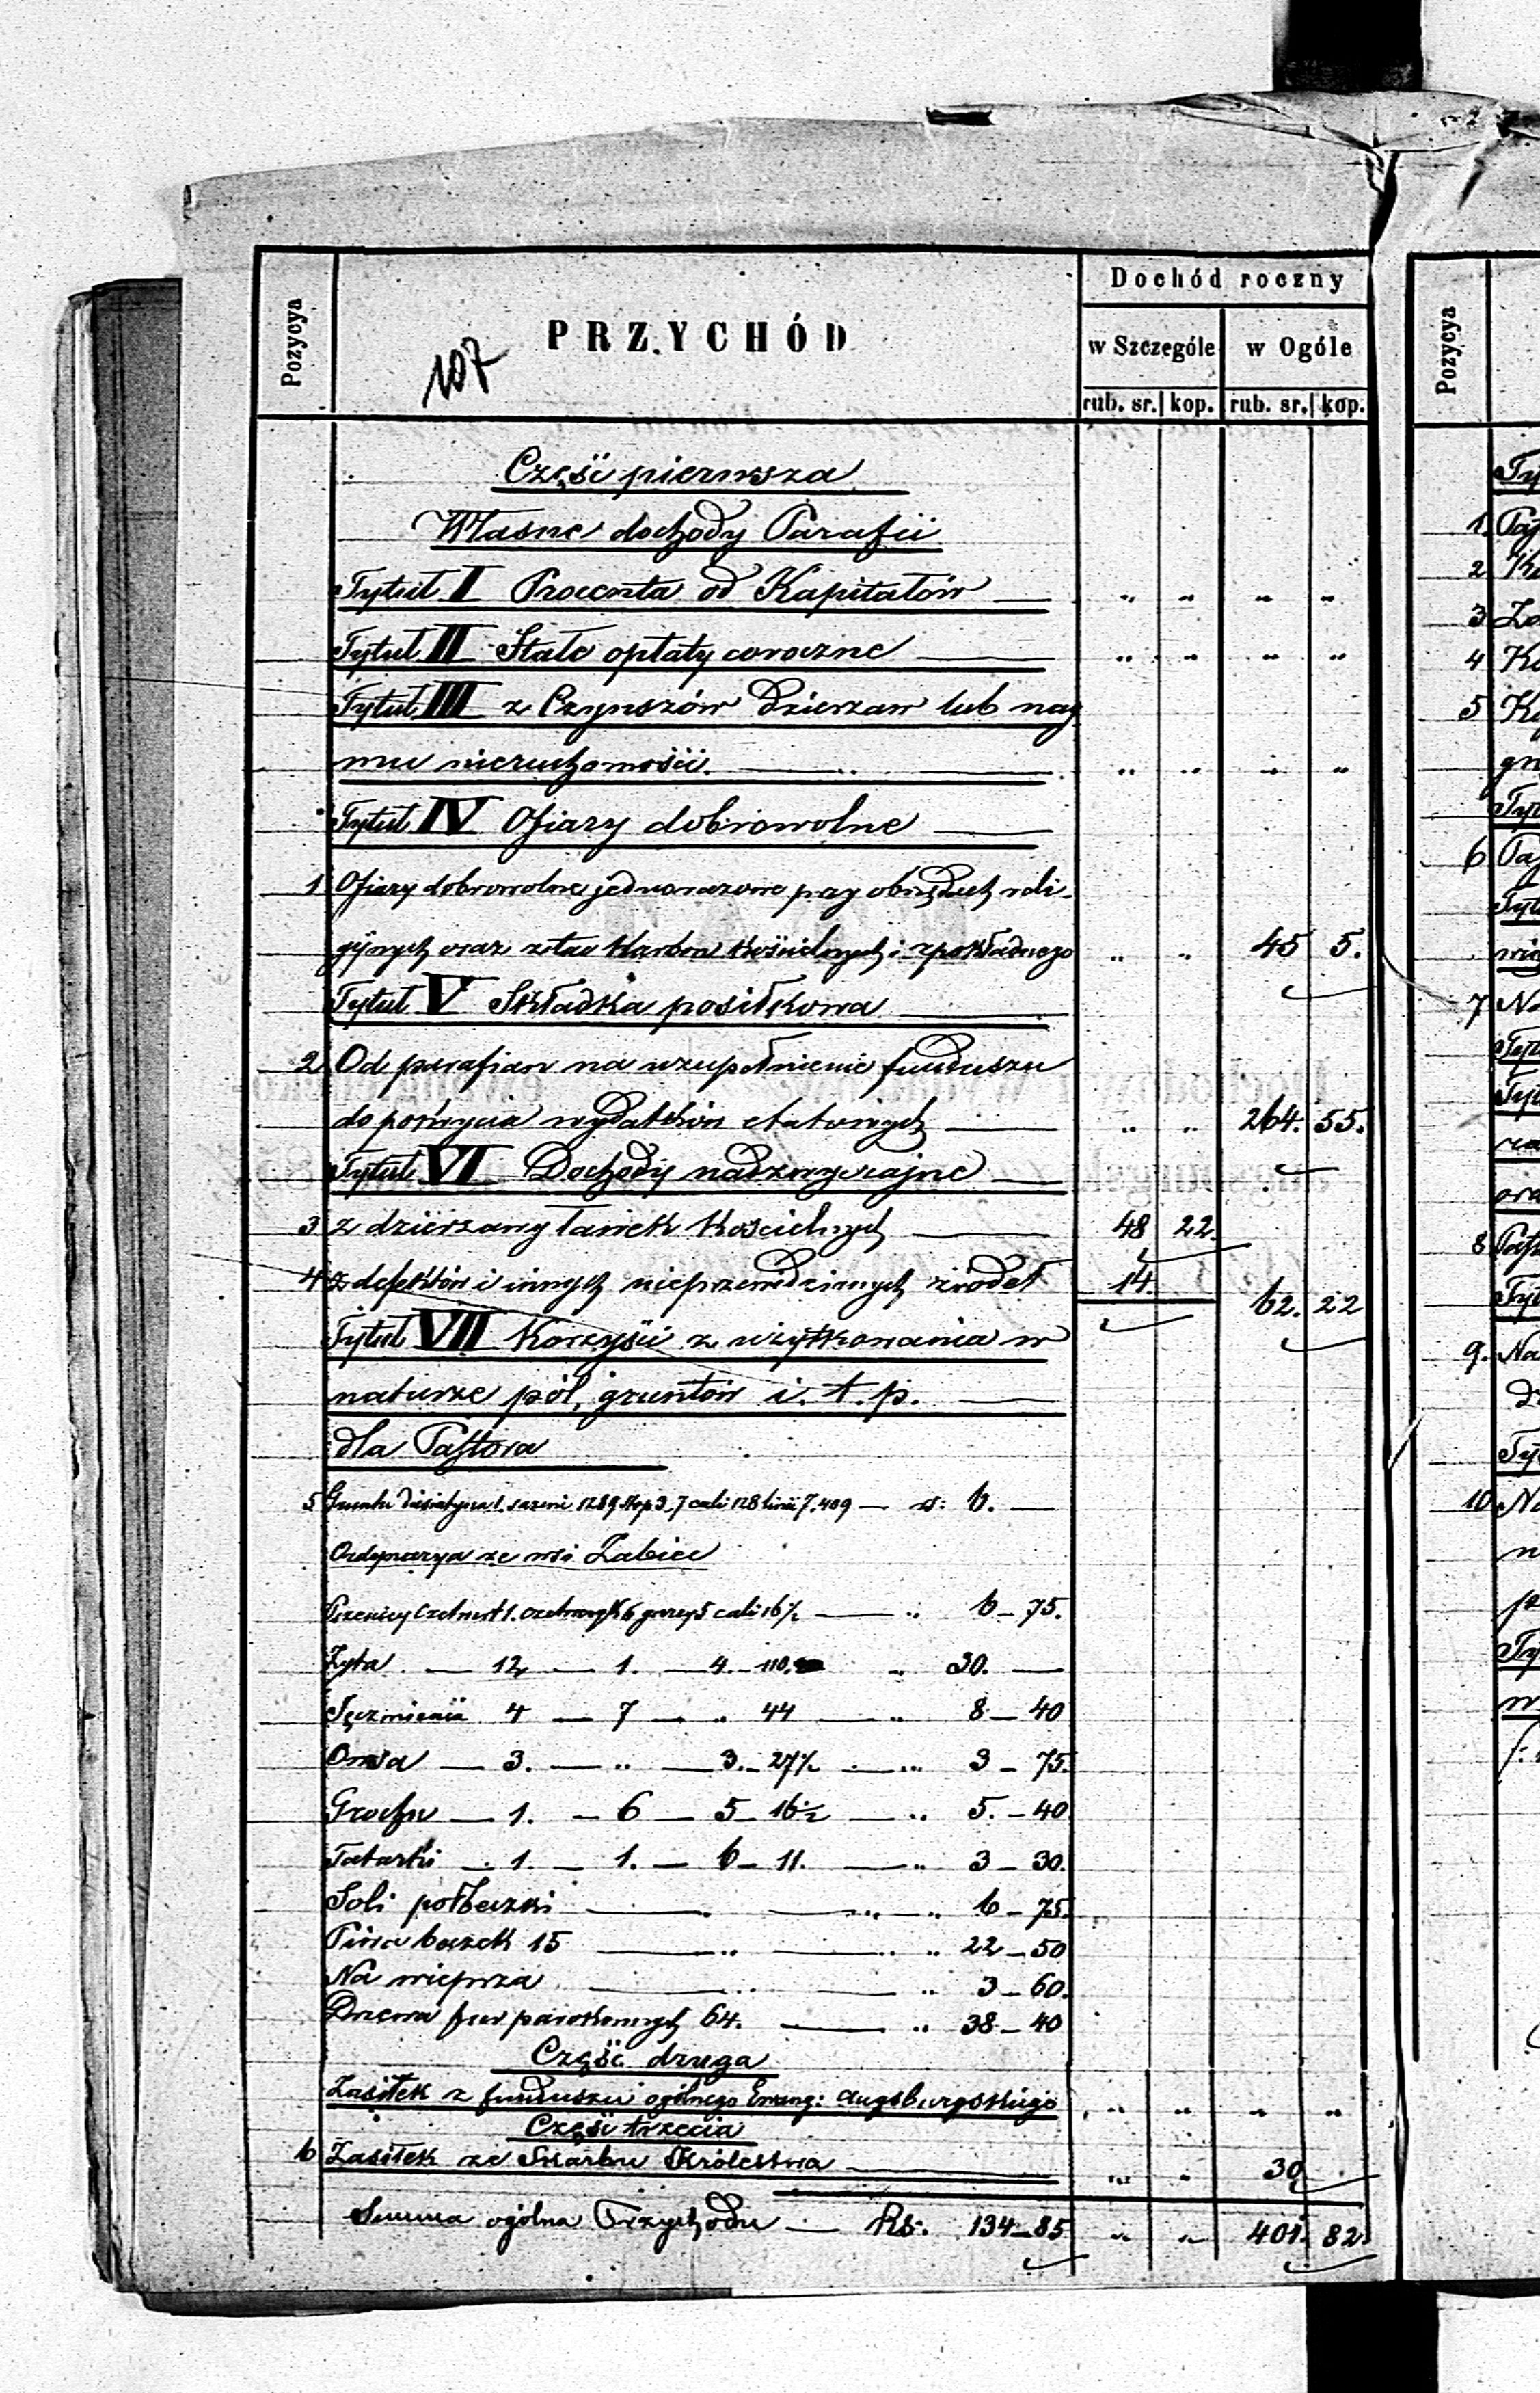 Pozycya
PRZYCHÓD
107
Dochód roczny
w Szczególe
w Ogóle
rub. sr. kop. rub. sr. kop.
Część pierwsza
Własne dochody Parafii
Tytuł I Procenta od Kapitałów — " " " "
Tytuł II Stałe opłaty coroczne — " " " "
Tytuł III z Czynszów Dzierżaw lub naj
mu nieruchomości. — " " " "
Tytuł IV Ofiary dobrowolne —
1 Ofiary dobrowolne jednorazowe przy obrzędach reli-
gijnych oraz z Karbon Kościelnych i " " 45 5.
Tytuł V Składka posiłkowa —
2 Od parafian na uzupełnienie funduszu
do pokrycia wydatków etatowych — " " 264. 55.
Tytuł VI Dochody nadzwyczajne —
3 z dzierżawy ławek Kościelnych — 48 22.
4 z defektów i innych nieprzewidzianych źródeł 14. 62. 22
Tytuł VII Korzyści z użytkowania w
naturze pól, gruntów i. t. p. —
dla Pastora
5 Gruntu Diesiatyna 1. sażeni 1289 stop 3, 7 cali 128 linii 7.409 — rs: 6. —
Ordynarya ze wsi Żabiec
Pszenicy Czetwert 1. czetweryk 6 garncy 5 cali 16½ — " 6 – 75.
Żyta — 12 — 1. — 4. – 110. " 30. —
Jęczmienia 4 — 7 — " 44 — " 8 – 40
Owsa — 3. — " — 3. – 27½ — " 3 – 75.
Grochu — 1. – 6 – 5 – 16½ — " 5. – 40
Tatarki — 1. – 1. – 6 – 11. — " 3 – 30.
Soli półbeczki — " 6 – 75.
Piwa beczek 15 — " 22 – 50
Na wieprza — " 3 – 60.
Drzewa fur parokonnych 64. — " 38 – 40
Część druga
Zasiłek z funduszu ogólnego Ewang: Augsburgskiego " " " "
Część trzecia
6 Zasiłek ze Skarbu Królestwa — " " 30
Summa ogólna Przychodu — Rs. 134 – 85 " " 401. 82.
Pozycya
1.
2
3
4
5
6
7
8
9.
10